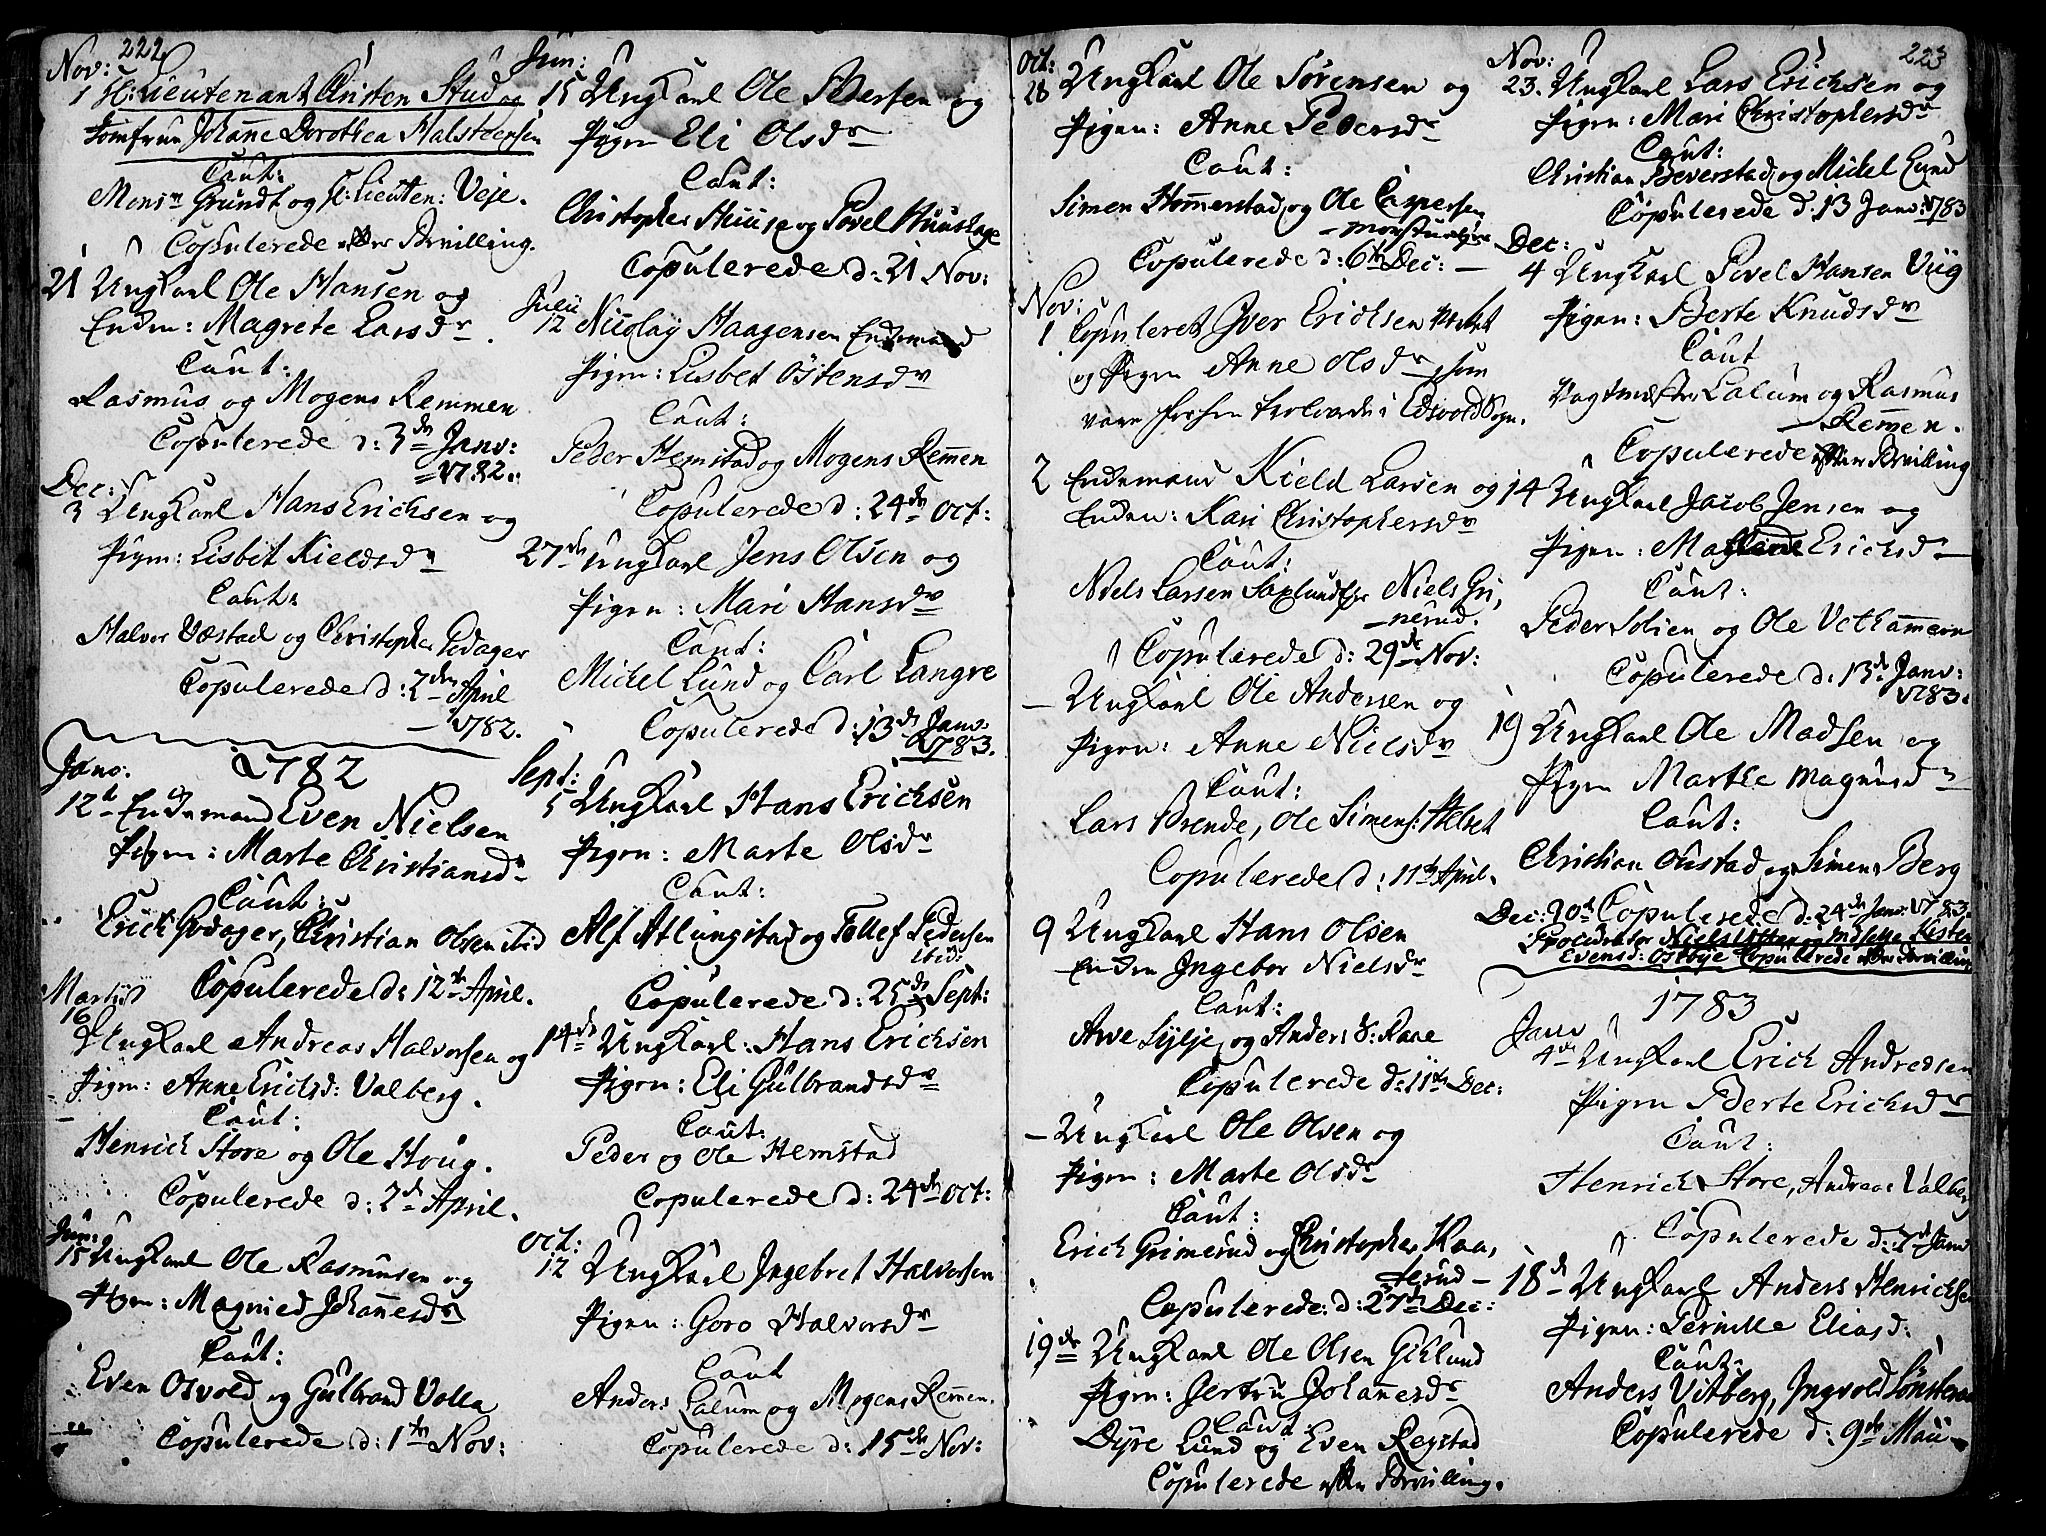 222
Nov:
1 H: Lieutenant Christen Stud og
Jomfrue Johanne Dorothea Halstensen
Caut:
Monsr Grundt og H: Lieuten: Veje.
Copulerede efter Bevilling.
21 Ungkarl Ole Hansen og
Enken: Magrete Larsdr.
Caut:
Rasmus og Mogens Remmen
Copulerede d: 3de Janv:
1782.
Dec:
3 Ungkarl Hans Erichsen og
Pigen: Lisbet Kieldsdr
Caut:
Halvor Væstad og Christopher Godager
Copulerede d: 2den April
1782.
1782
Janv:
12t Enkemand Even Nielsen
Pigen: Marte Christiansdr
Caut:
Erich Godager, Christian Olsen ibid
Copulerede d: 12te April.
Martij
16
Ungkarl Andreas Halvorsen og
Pigen: Anne Ericsd: Valberg.
Caut:
Henrich Store og Ole Houg.
Copulerede d: 2de April.
Jun:
15 Ungkarl Ole Rasmusen og
Pigen: Magnied Johannesdr
Caut:
Even Osvold og Gulbrand Volla
Copulerede d: 1ten Nov:
Jun:
15 Ungkarl Ole Iversen og
Pigen Eli Olsdr
Caut:
Christopher Huuse og Povel Huushage
Copulerede d: 21 Nov:
Julii
12 Nicolay Haagensen Enkemand
Pigen: Lisbet Østensdr
Caut:
Peder Hemstad og Mogens Remmen
Copulerede d: 24de Oct:
27de Ungkarl Jens Olsen og
Pigen: Mari Hansdr
Caut:
Michel Lund og Carl Langre
Copulerede d: 13de Janv:
1783.
Sept:
5 Ungkarl Hans Erichsen
Pigen: Marte Olsdr
Caut:
Alf Atlungstad og Tollef Pedersen
ibid:
Copulerede d: 25de Sept:
14de Ungkarl: Hans Erichsen
Pigen: Eli Gulbrandsdr
Caut:
Peder og Ole Hemstad
Copulerede d: 24de Oct:
Oct:
12 Ungkarl Ingebret Halvorsen
Pigen: Goro Halvorsdr
Caut
Anders Lalum og Mogens Remmen.
Copulerede d: 15de Nov:
223
Oct:
28 Ungkarl Ole Sørensen og
Pigen: Anne Pedersdr
Caut:
Simen Hommerstad og Ole Caspersen
Copulerede d: 6te Dec:
Nov:
1 Copuleret Iver Erichsen
og Pigen Anne Olsdr som
vare forhen trolovede i Edsvold Sogn.
2 Enkemand Kield Larsen og
Enken: Kari Christophersdr
Caut:
Niels Larsen Saxlund, Niels Gri,
nerud.
Copulerede d: 29de Nov:
Ungkarl Ole Andersen og
Pigen: Anne Nielsdr
Caut:
Lars Brende, Ole Simens: Helset
Copulerede d: 11te April.
9 Ungkarl Hans Olsen
Enken Ingebor Nielsdr
Caut:
Arve Lylje og Anders Raae
Copulerede d: 11te Dec:
Ungkarl Ole Olsen og
Pigen: Marte Olsdr
Caut:
Erich Grimerud og Christopher Kaa,
terud
Copulerede: d: 27de Dec:
19de Ungkarl Ole Olsen Giklund
Pigen: Jertru Johannesdr
Caut
Dyre Lund og Even Regstad
Copulerede efter Bevilling.
Nov:
23. Ungkarl Lars Erichsen og
Pigen: Mari Christophersdr
Caut:
Christian Beverstad og Michel Lund
Copulerede d. 13 Janv: 1783
Dec:
4 Ungkarl Povel Hansen Viig
Pigen: Berte Knudsdr
Caut
Vagtmester Lalum og Rasmus
Remmen.
Copulerede efter Bevilling
14 Ungkarl Jacob Jensen og
Pigen: Erichsdr
Caut:
Peder Solien og Ole Vethammern
Copulerede d. 13de Janv:
1783.
19 Ungkarl Ole Madsen og
Pigen Marthe Magnusdr
Caut:
Christian Oustad og Simen Berg
Copulerede d. 24de Janv: 1783.
Dec: 20de
Procurator Niels Utter og Madselle Kisten
Evensd: Østbye Copulerede efter Bevilling
1783
Janv
4de Ungkarl Erich Andredsen
Pigen Berte Erichsdr
Caut:
Henrich Store, Andreas Valberg
Copulerede d: 7de Janv
18de Ungkarl Anders Henrichsen
Pigen: Pernille Eliasd:
Caut:
Anders Vitberg, Ingvold
Copulerede d: 9de Maii